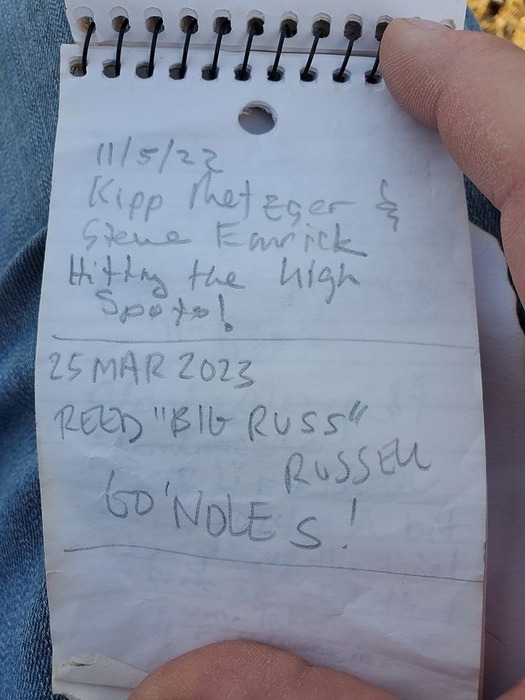 11/5/22
Kipp Metzger &
Steve Emrick
Hitting the high
Spots!
25 MAR 2023
REED "BIG RUSS"
RUSSELL
GO 'NOLES!